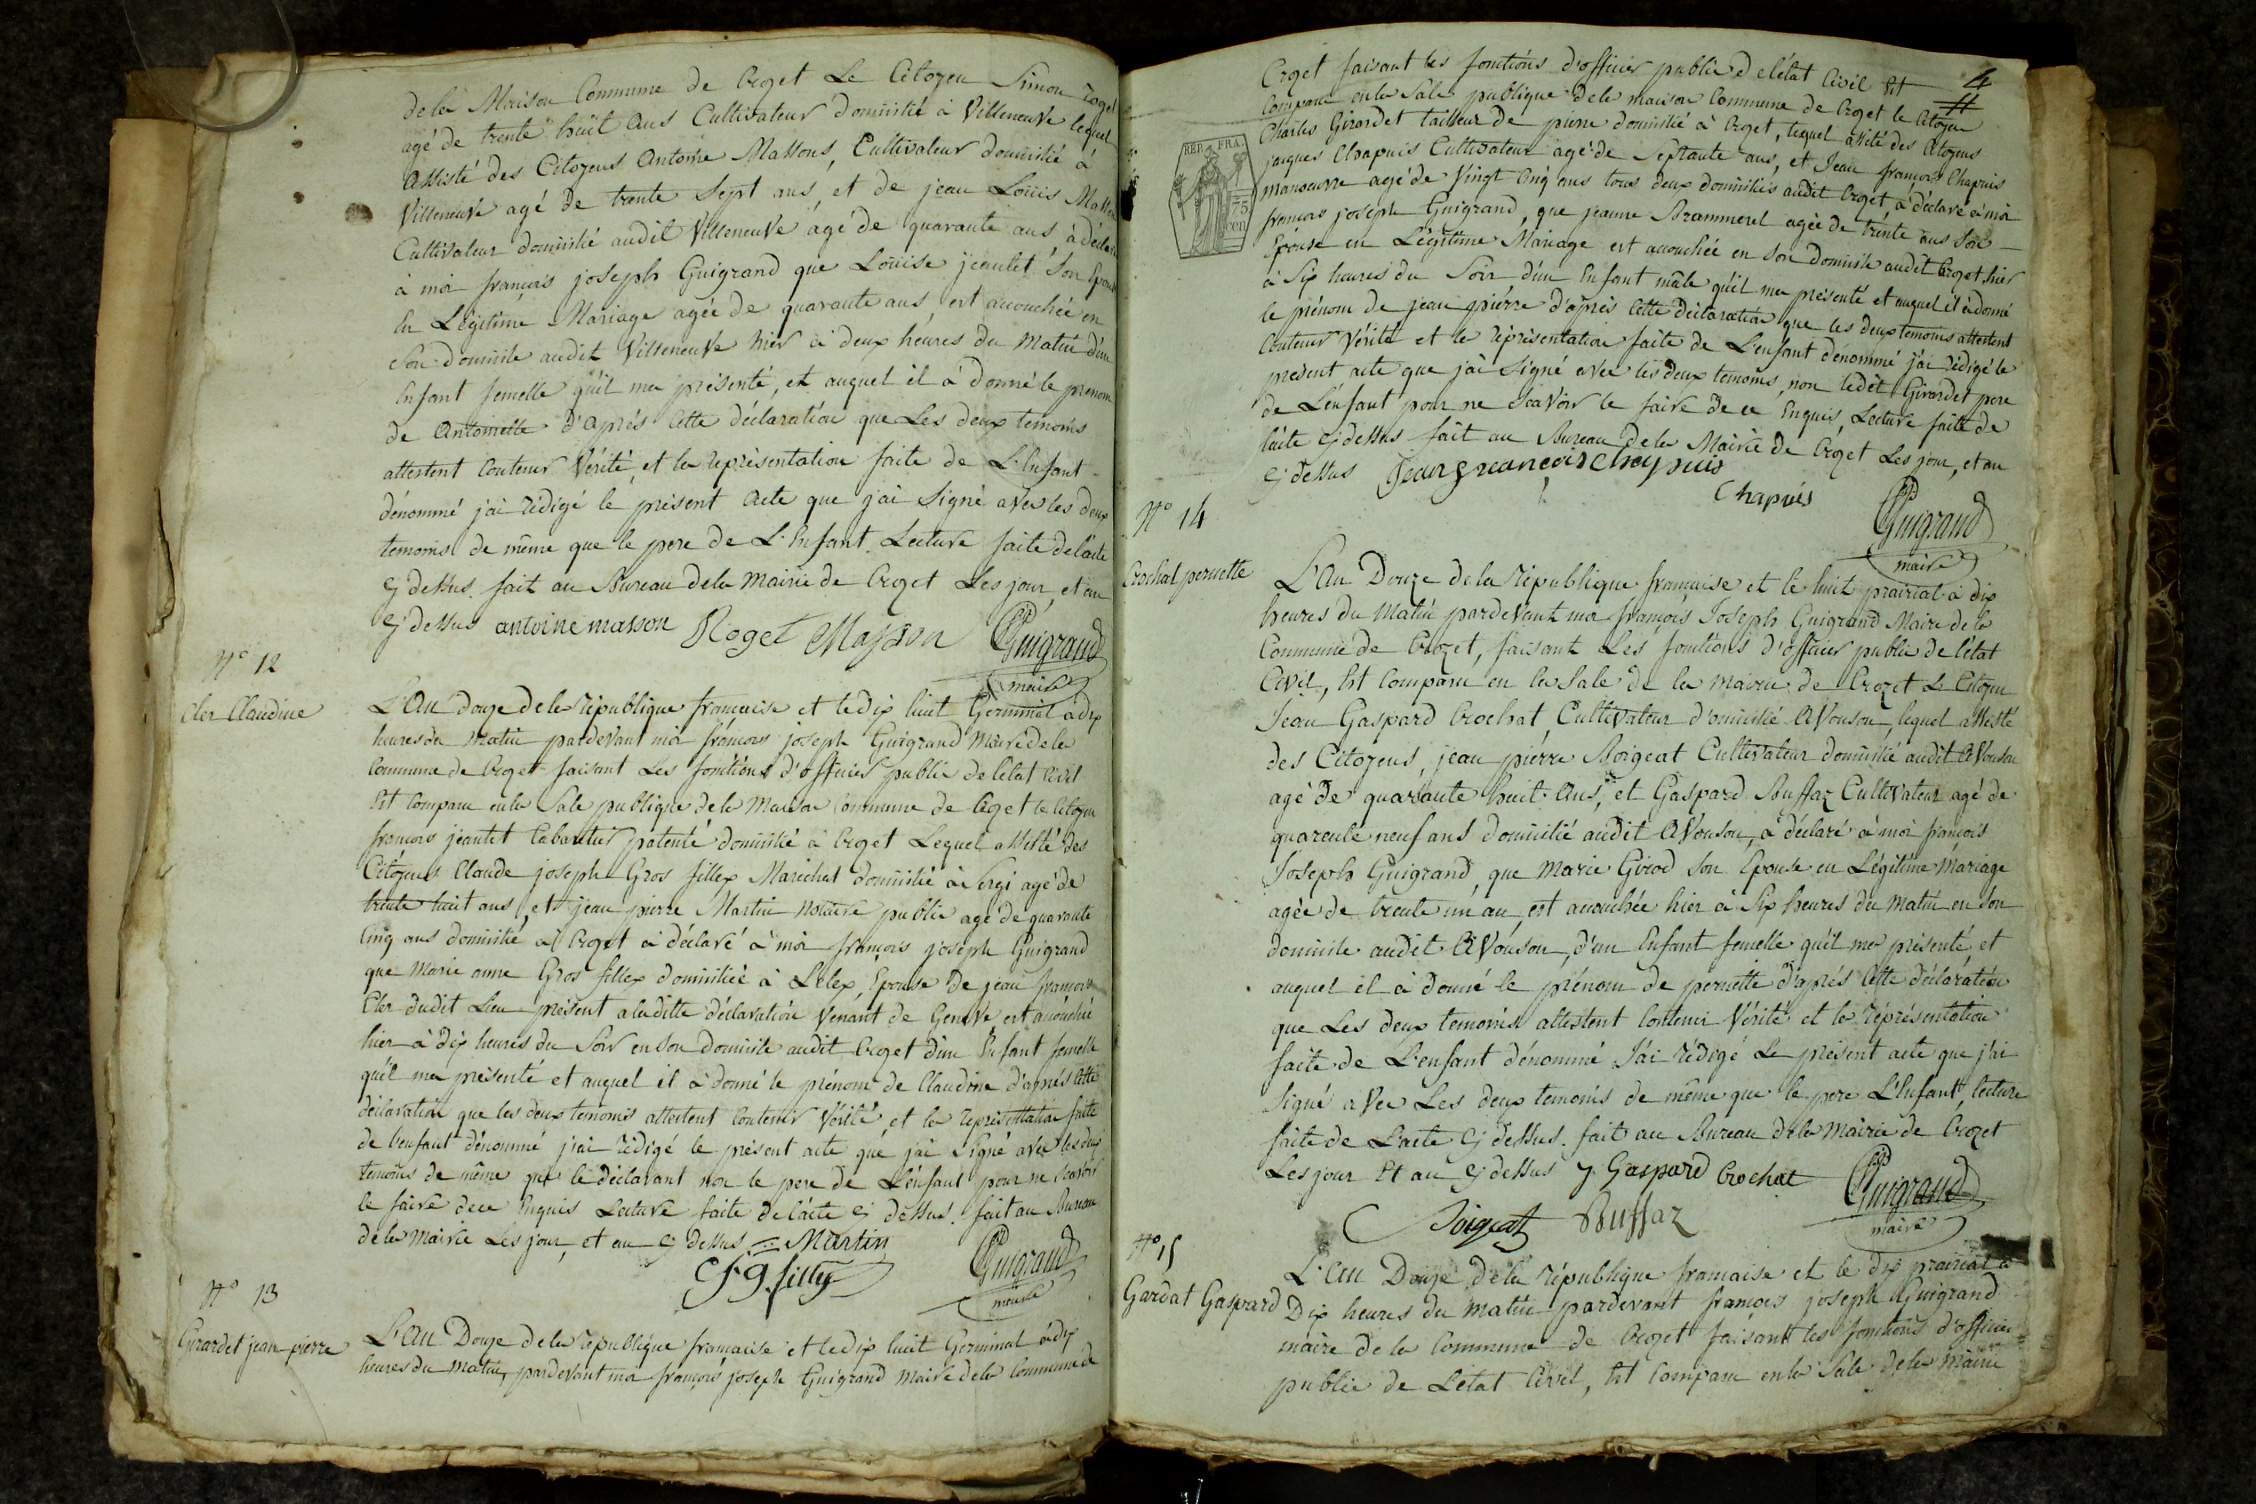 de la Maison Commune de Crozet Le Citoyen Simon Roget
agé de trente huit ans Cultivateur domicilié à Villeneuve lequel
assisté des Citoyens Antoine Massons, Cultivateur domicilié à
Villeneuve agé de trente Sept ans, et de jean Loüis Masson
Cultivateur domicilié audit Villeneuve agé de quarante ans, à déclaré
à moi françois joseph Guigrand que Loüise jeantet Son Epouse
En Légitime Mariage agée de quarante ans, est accouchée en
Son domicile audit Villeneuve hier à deux heures du Matin d'un
Enfant femelle qu'il ma présenté, et auquel il à donné le prenom
de Antoinette d'après Cette déclaration que Les deux temoins
attestent Contenir Vérité, et la représentation faite de L'Enfant
dénommé j'ai rédigé le présent acte que j'ai Signé avec les deux
temoins de même que le pere de L'Enfant. Lecture faite de l'acte
Cy dessus. fait au Bureau de la Mairie de Crozet Les jour, et an
Cy dessus antoine masson Roget Masson Guigrand
maire
N° 12
Cler Claudine
L'An douze de la république française et le dix huit Germinal à dix
heures du Matin pardevant moi françois joseph Guigrand Maire de la
Commune de Crozet faisant Les fonctions d'officier public de l'état Civil
Est Comparu en la Sale publique de la Maison Commune de Crozet le Citoyen
françois jeantet Cabaretier patenté domicilié à Crozet Lequel assisté des
Citoyens Claude joseph Gros fillex Maréchal domicilié à Sergi agé de
trente huit ans, et jean pierre Martin Notaire public agé de quarante
Cinq ans domicilié à Crozet à déclaré à moi françois joseph Guigrand
que Marie anne Gros fillex domiciliée à Lélex, Epouse de jean françois
Cler dudit Lieu présent a ladite déclaration Venant de Geneve est accouchée
hier à dix heures du Soir en son domicile audit Crozet d'un Enfant femelle
qu'il ma présenté et auquel il à donné le prénom de Claudine d'après Cette
déclaration que les deux temoins attestent Contenir Vérité, et la représentation faite
de l'enfant dénommé j'ai rédigé le présent acte que j'ai Signé avec les deux
temoins de même que le déclarant non le pere de L'enfant pour ne Scavoir
le faire de ce Enquis Lecture faite de l'acte Cy dessus. fait au Bureau
de la Mairie Les jour, et an Cy dessus Martin
Guigrand
maire
N° 13
Girardet jean-pierre
L'An Douze de la république française et le dix huit Germinal à dix
heures du Matin, pardevant moi françois joseph Guigrand maire de la Commune de
4
Crozet faisant les fonctions d'officier public de l'état Civil Est
Comparu en la Sale publique de la maison Commune de Crozet le Citoyen
Charles Girardet tailleur de pierre domicilié à Crozet, lequel assité des Citoyens
jacques Chapuis Cultivateur agé de Septante ans, et Jean françois Chapuis
manoeuvre agé de Vingt Cinq ans tous deux domiciliés audit Crozet à déclaré à moi
françois joseph Guigrand, que jeanne Brammerel agée de trente ans Son
Epouse en Légitime Mariage est accouchée en Son Domicile audit Crozet hier
à Six heures du Soir d'un Enfant mâle qu'il ma présenté et auquel il à donné
le prénom de jean pierre d'après Cette déclaration que les deux temoins attestent
Contenir Vérité et la répresentation faite de L'enfant dénommé j'ai rédigé le
présent acte que j'ai Signé avec les deux temoins, non ledit Girardet pere
de L'enfant pour ne Scavoir le faire de ce Enquis, Lecture faite de
l'acte Cy dessus fait au Bureau de la Mairie de Crozet Les jour, et an
Cy dessus Jean françois chapuis
Chapuis
Guigrand
maire
REP. FRA.
75
cen
N° 14
Crochat pernette
L'An Douze de la république française et le huit prairial à dix
heures du Matin pardevant moi françois Joseph Guigrand Maire de la
Commune de Crozet, faisant Les fonctions d'officier public de l'état
Civil, Est Comparu en la Sale de la mairie de Crozet Le Citoyen
Jean Gaspard Crochat Cultivateur domicilié Avouson, lequel assisté
des Citoyens, jean pierre Boigeat Cultivateur domicilié audit Avouson
agé de quarante huit Ans, et Gaspard Buffaz Cultivateur agé de
quarente neuf ans domicilié audit Avouson, à déclaré à moi françois
Joseph Guigrand, que Marie Girod Son Epouse en Légitime Mariage
agée de trente un an est accouchée hier à Six heures du Matin en Son
domicile audit Avouson, d'un Enfant femelle qu'il ma présenté et
auquel il à donné le prénom de pernette d'après Cette déclaration
que Les deux temoins attestent Contenir Vérité et la réprésentation
faite de L'enfant dénommé J'ai rédigé Le présent acte que j'ai
Signé avec Les deux temoins de même que le pere L'Enfant, lecture
faite de L'acte Cy dessus. fait au Bureau de la Mairie de Crozet
Les jour Et an Cy dessus J Gaspard Crochat Guigrand
Boigeat Buffaz
maire
N° 15
Gardat Gaspard
L'An Douze de la république française et le dix prairial à
Dix heures du matin pardevant françois joseph Guigrand
maire de la Commune de Crozet faisant les fonctions d'officier
public de L'état Civil, Est Comparu en la Sale de la mairie